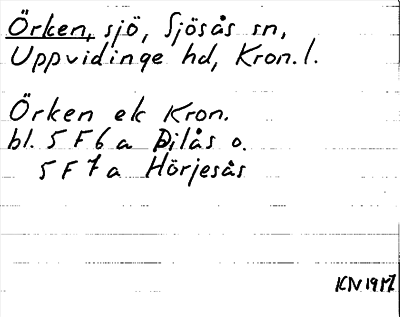 Örken, sjö, Sjösås sn,
Uppvidinge hd, Kron. l.
Örken ek Kron.
bl. 5 F 6 a Þilås o.
5 F 7 a Hörjesås
KN 1917